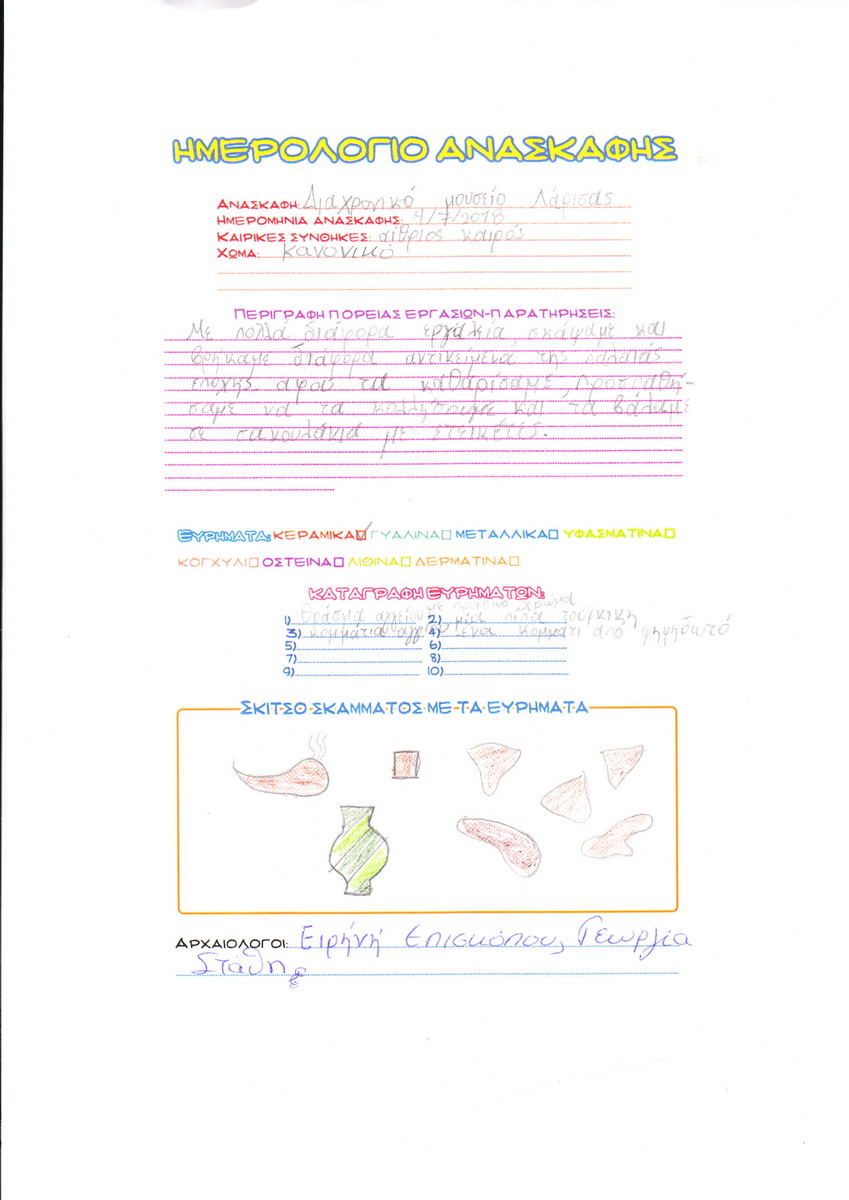 ΗΜΕΡΟΛΟΓΙΟ ΑΝΑΣΚΑΦΗΣ
ΑΝΑΣΚΑΦΗ: Διαχρονικό μουσείο Λάρισας
ΗΜΕΡΟΜΗΝΙΑ ΑΝΑΣΚΑΦΗΣ: 4/7/2018
ΚΑΙΡΙΚΕΣ ΣΥΝΘΗΚΕΣ: αίθριος καιρός
ΧΩΜΑ: κανονικό
ΠΕΡΙΓΡΑΦΗ ΠΟΡΕΙΑΣ ΕΡΓΑΣΙΩΝ-ΠΑΡΑΤΗΡΗΣΕΙΣ:
Με πολλά διάφορα εργαλεία, σκάψαμε και
βρήκαμε διάφορα αντικείμενα της παλαιάς
εποχής αφού τα καθαρίσαμε, προσπαθή-
σαμε να τα κολλήσουμε και τα βάλαμε
σε σακουλάκια με ετεικέτες.
ΕΥΡΗΜΑΤΑ: ΚΕΡΑΜΙΚΑ☑ ΓΥΑΛΙΝΑ☐ ΜΕΤΑΛΛΙΚΑ☐ ΥΦΑΣΜΑΤΙΝΑ☐
ΚΟΓΧΥΛΙ☐ ΟΣΤΕΙΝΑ☐ ΛΙΘΙΝΑ☐ ΔΕΡΜΑΤΙΝΑ☐
ΚΑΤΑΓΡΑΦΗ ΕΥΡΗΜΑΤΩΝ:
1) θράσμα αγγείου με πράσινο χρώμα 2) μία πίπα τούρκικη
3) κομμάτια 4) ένα κομμάτι από ψηφηδωτό
5) 6)
7) 8)
9) 10)
ΣΚΙΤΣΟ ΣΚΑΜΜΑΤΟΣ ΜΕ ΤΑ ΕΥΡΗΜΑΤΑ
ΑΡΧΑΙΟΛΟΓΟΙ: Ειρήνή Επισκόπου, Γεωργία
Στάθη